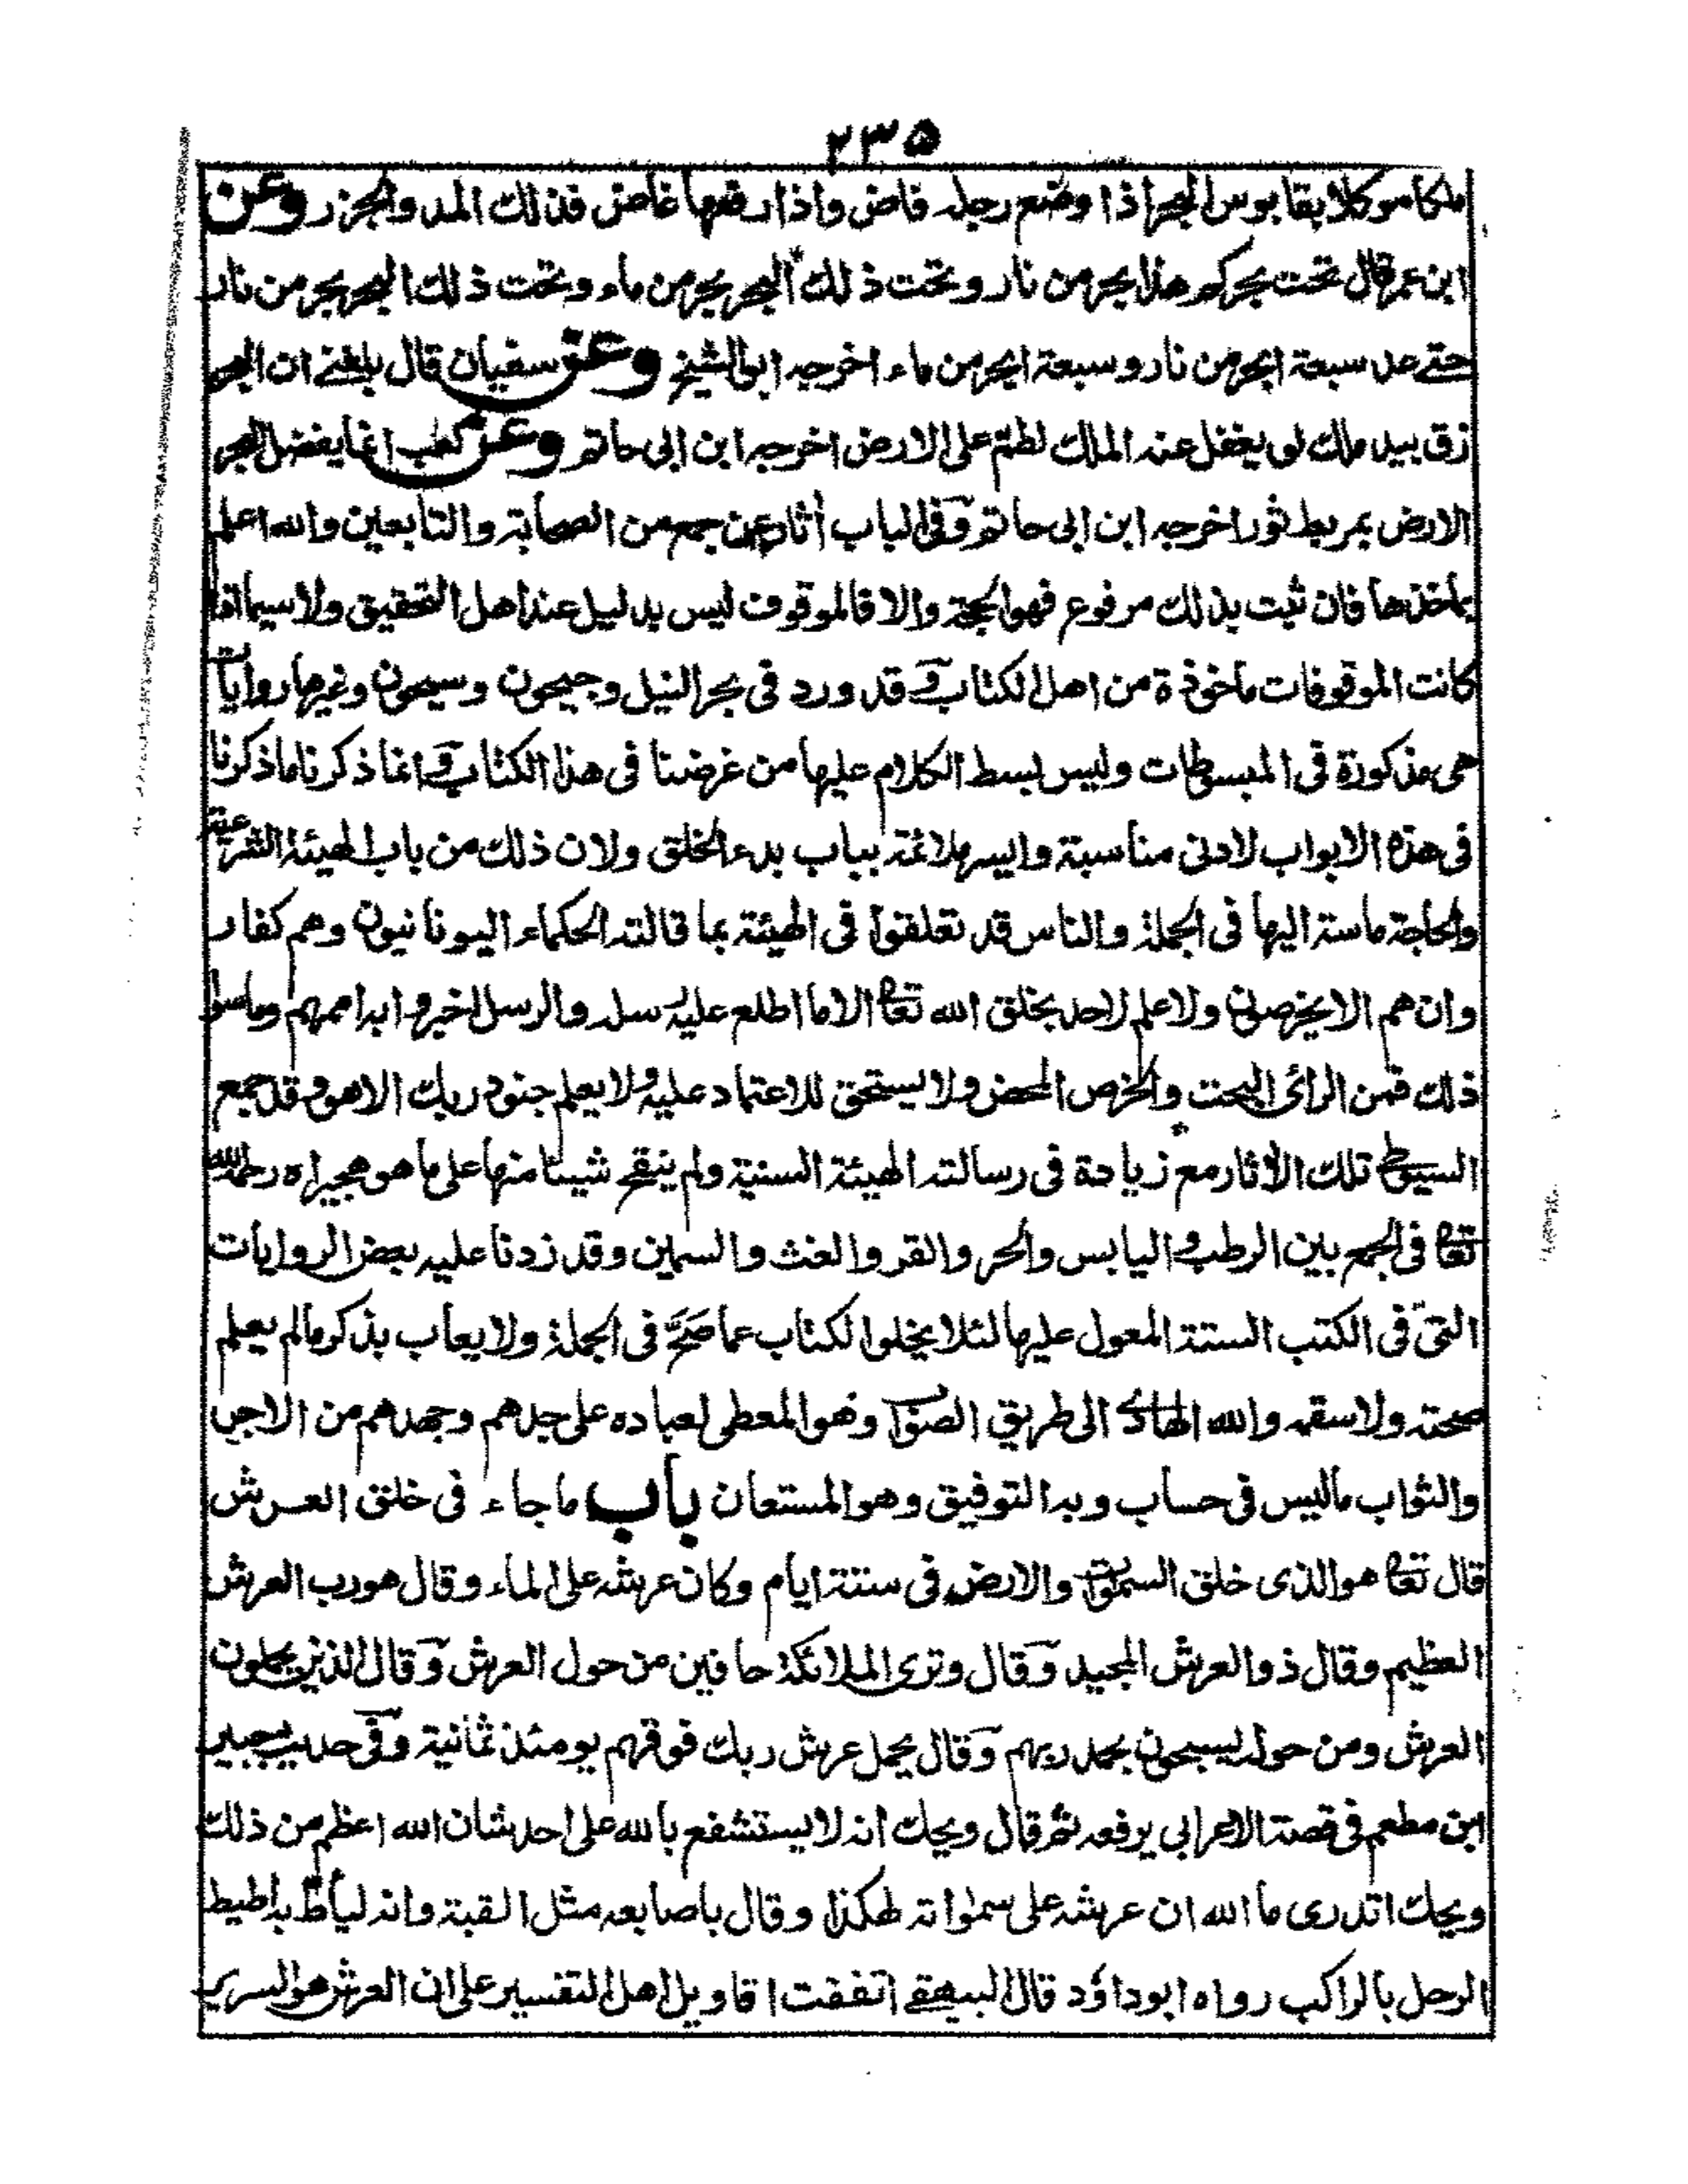 ٢٣٥
ملكا موكلا بقابوس البحر اذا وضع رجله فاض واذا رفعها غاض فذلك المد والجزر وعن
ابن عمر قال تحت بحركم هذا بحر من نار وتحت ذلك البحر بحر من ماء وتحت ذلك البحر بحر من نار
حتى عد سبعة ابحر من نار وسبعة ابحر من ماء اخرجه ابو الشيخ وعن سفيان قال بلغنى ان البحر
زق بيد ملك لو يغفل عنه الملك لطم على الارض اخرجه ابن ابى حاتم وعن كعب انما يفضل البحر
الارض بمربط ثور اخرجه ابن ابى حاتم وفى الباب أثار عن جمع من الصحابة والتابعين والله اعلم
بماخذها فان ثبت بذلك مرفوع فهو الحجة والا فالموقوف ليس بدليل عند اهل التحقيق ولاسيما اذا
كانت الموقوفات ماخوذة من اهل الكتاب وقد ورد فى بحر النيل وجيحون وسيحون وغيرها روايات
هى مذكورة فى المبسوطات وليس بسط الكلام عليها من غرضنا فى هذا الكتاب وانما ذكرنا ما ذكرنا
فى هذه الابواب لادنى مناسبة وايسر ملائمة بباب بدء الخلق ولان ذلك من باب الهيئة الشرعية
والحاجة ماسة اليها فى الجملة والناس قد تعلقوا فى الهيئة بما قالته الحكماء اليونانيون وهم كفار
وان هم الا يخرصون ولا علم لاحد بخلق الله تعالى الا ما اطلع عليه رسله والرسل اخبروا به اممهم وما سوا
ذلك فمن الرائى البحت والخرص المحض ولا يستحق للاعتماد عليه ولا يعلم جنود ربك الا هو وقد جمع
السيوطى تلك الأثار مع زيادة فى رسالته الهيئة السنية ولم ينقح شيئا منها على ما هو هجيراه رحمه الله
تعالى فى الجمع بين الرطب واليابس والحر والقر والغث والسمين وقد زدنا عليه بعض الروايات
التى فى الكتب الستة المعول عليها لئلا يخلوا لكتاب عما صح فى الجملة ولا يعاب بذكر مالم يعلم
صحته ولا سقمه والله الهادى الى طريق الصواب وهو المعطى لعباده على جدهم وجهدهم من الاجر
والثواب ماليس فى حساب وبه التوفيق وهو المستعان باب ما جاء فى خلق العرش
قال تعالى هو الذى خلق السموات والارض فى ستة ايام وكان عرشه على الماء وقال هو رب العرش
العظيم وقال ذو العرش المجيد وقال وترى الملائكة حافين من حول العرش وقال الذين يحملون
العرش ومن حوله يسبحون بحمد ربهم وقال يحمل عرش ربك فوقهم يومئذ ثمانية وفى حديث جبير
ابن مطعم فى قصة الاعرابى يرفعه ثم قال ويحك انه لا يستشفع بالله على احد شان الله اعظم من ذلك
ويحك اتدرى ما الله ان عرشه على سمواته لهكذا وقال باصابعه مثل القبة وانه لياط به اطيط
الرحل بالراكب رواه ابو داؤد قال البيهقى اتفقت اقاويل اهل التفسير على ان العرش هو السرير